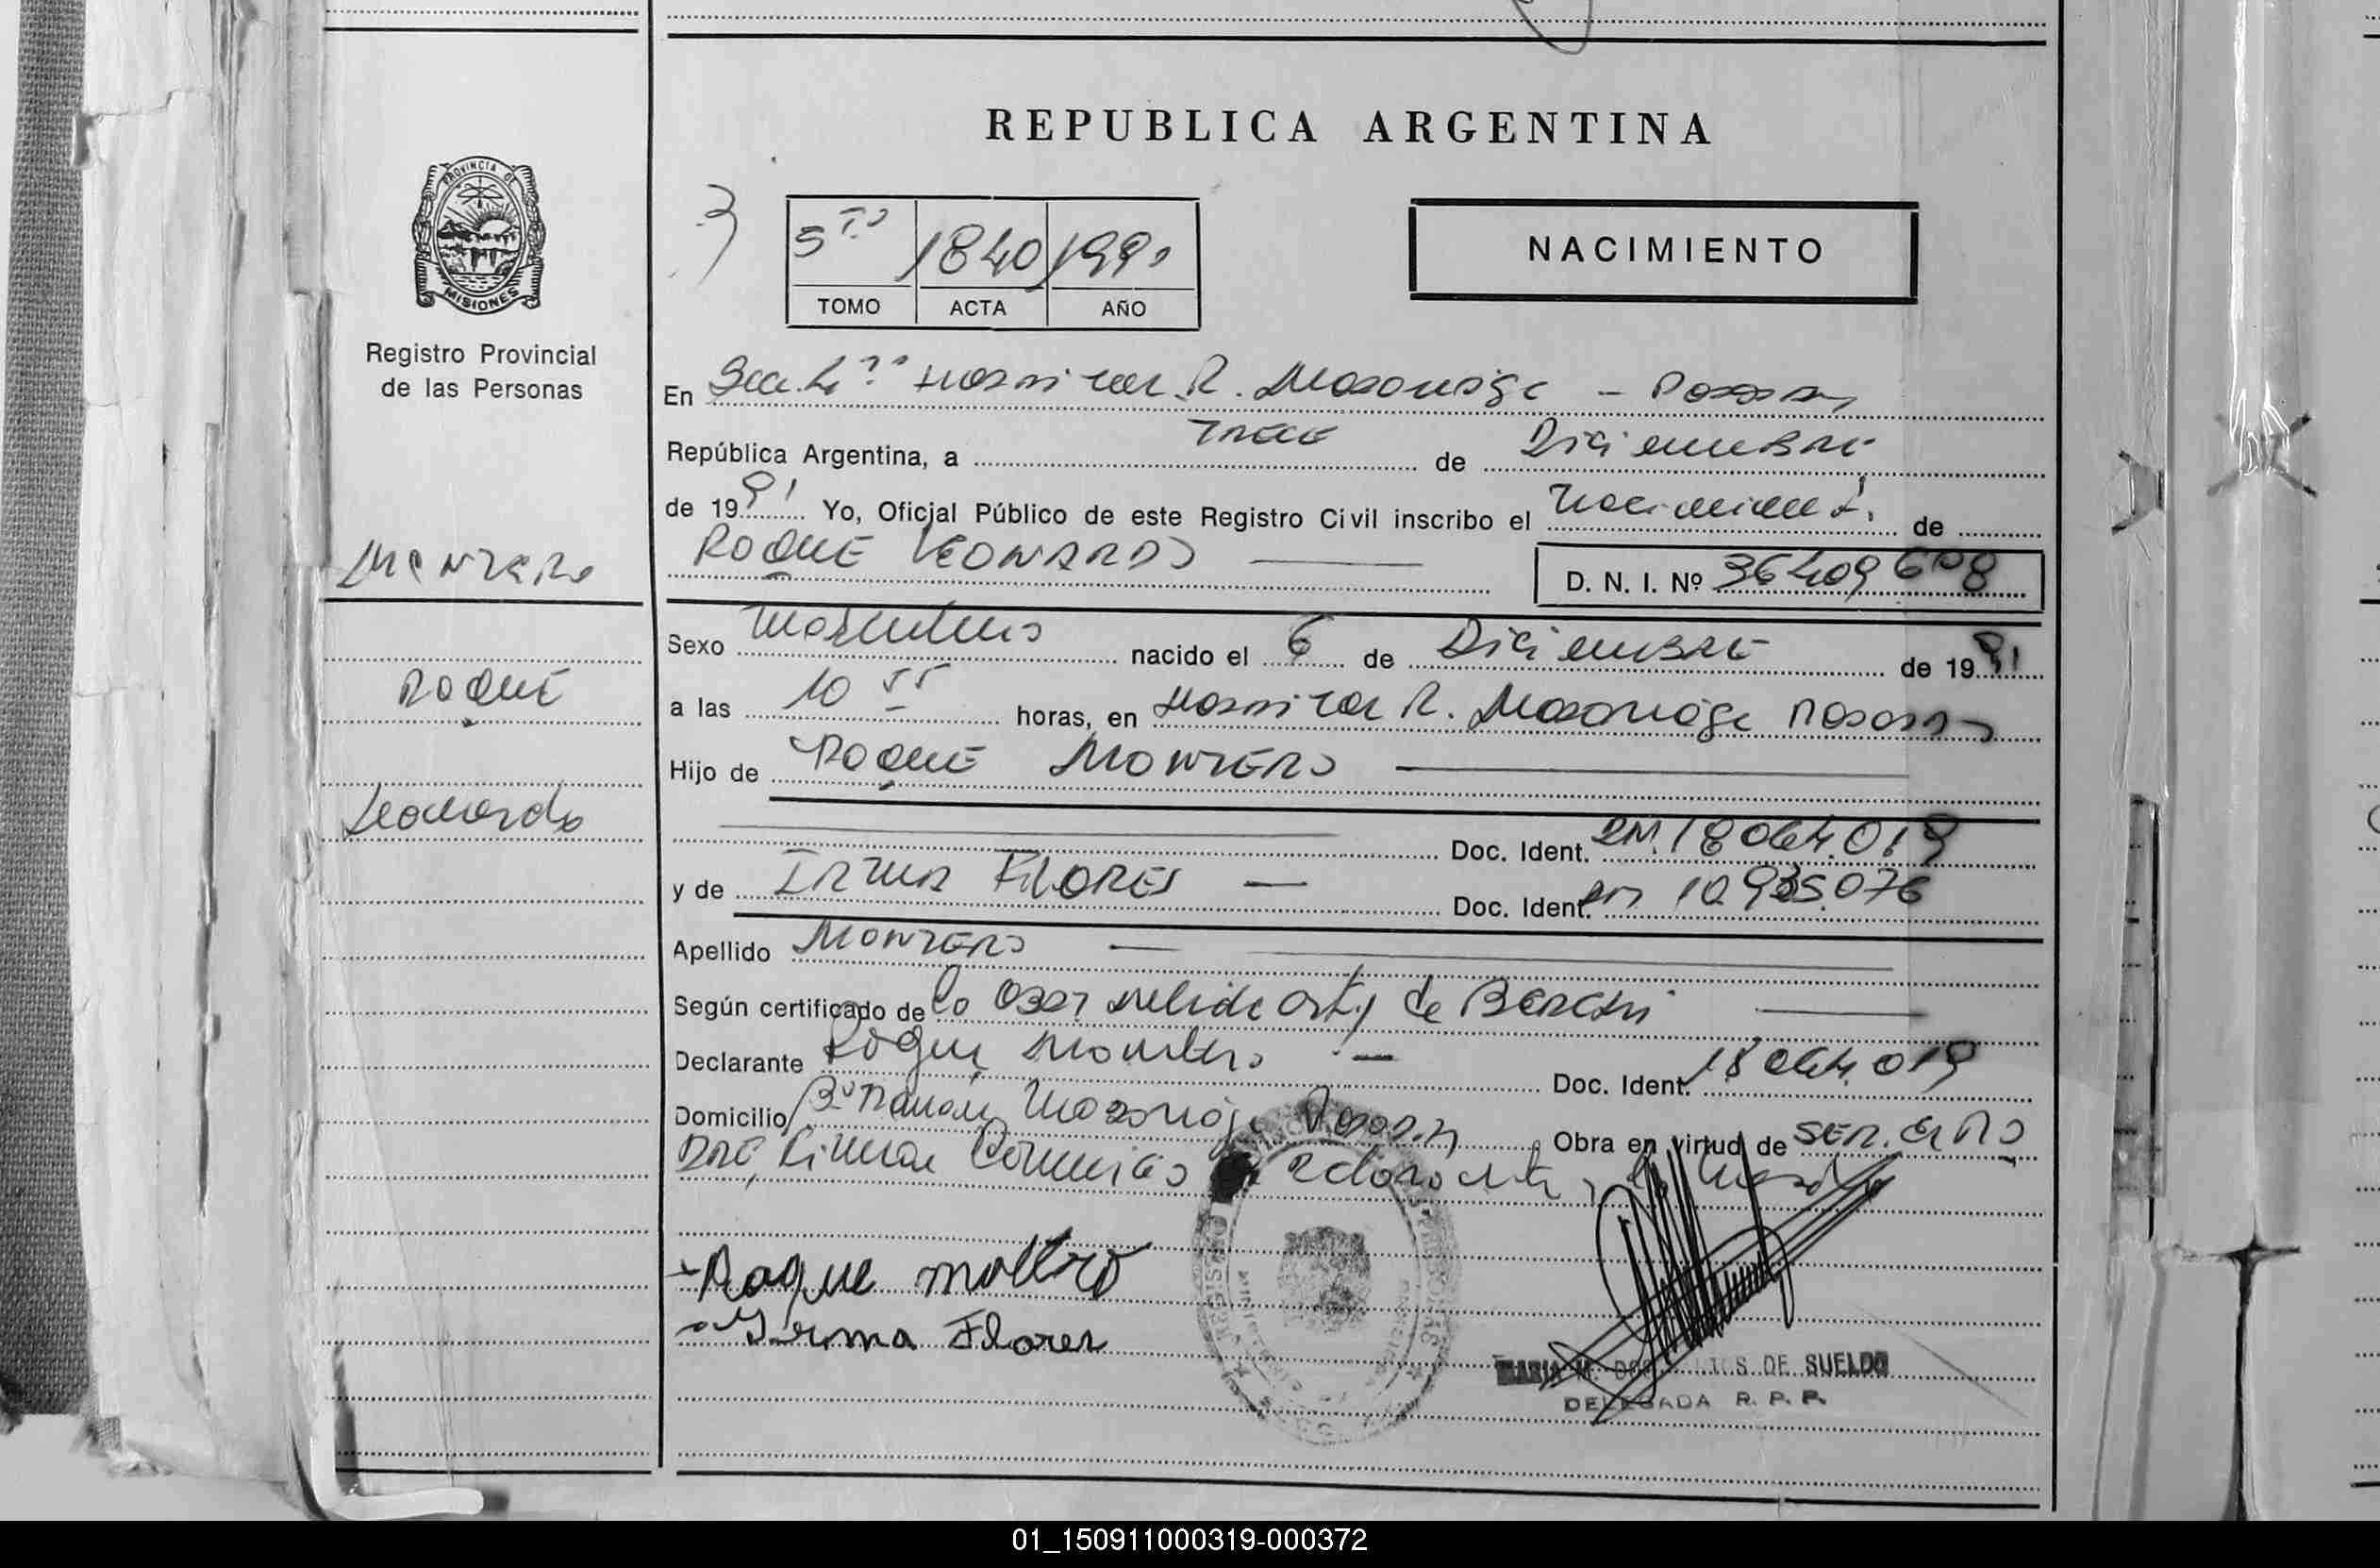 REPUBLICA ARGENTINA
PROVINCIA DE
MISIONES
Registro Provincial
de las Personas
5to 1840 1991
TOMO ACTA AÑO
NACIMIENTO
En Hospital R. Madariaga - Posadas
República Argentina, a TRECE de Diciembre
de 1991 Yo, Oficial Público de este Registro Civil inscribo el nacimiento de
ROQUE LEONARDO
D. N. I. Nº 36409608
Montero
ROQUE
Leonardo
Sexo Masculino nacido el 6 de Diciembre de 1991
a las 10 55 horas, en Hospital R. Madariaga Posadas
Hijo de ROQUE MONTERO
Doc. Ident. DNI. 18064.019
y de IRMA FLORES — Doc. Ident. DNI 10.935.076
Apellido MONTERO
Según certificado de la Obst Nelida de
Declarante Roque Montero - Doc. Ident. 18 064.019
Domicilio Bº Ramón Madariaga Posadas Obra en virtud de
Roque
Irma Flores
MARIA M. DE SUELDO
DELEGADA R. P. P.
01_150911000319-000372